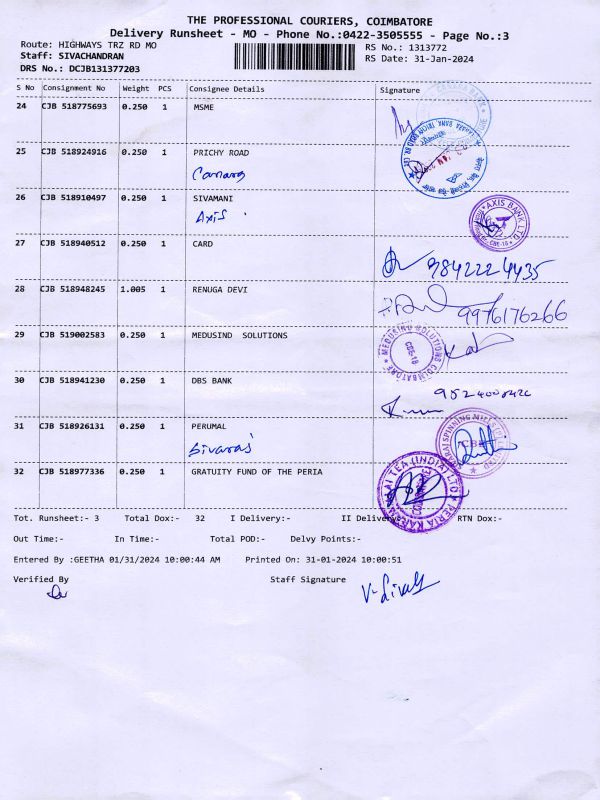 THE PROFESSIONAL COURIERS, COIMBATORE
Delivery Runsheet - MO - Phone No.:0422-3505555 - Page No.:3
Route: HIGHWAYS TRZ RD MO RS No.: 1313772
Staff: SIVACHANDRAN RS Date: 31-Jan-2024
DRS No.: DCJB131377203
S No Consignment No Weight PCS Consignee Details Signature
24 CJB 518775693 0.250 1 MSME
CANARA BANK
25 CJB 518924916 0.250 1 PRICHY ROAD
Canara
26 CJB 518910497 0.250 1 SIVAMANI
Axis
AXIS BANK LTD
27 CJB 518940512 0.250 1 CARD
9842224435
28 CJB 518948245 1.005 1 RENUGA DEVI
9976176266
29 CJB 519002583 0.250 1 MEDUSIND SOLUTIONS
MEDUSIND SOLUTIONS COIMBATORE
CBE-18
30 CJB 518941230 0.250 1 DBS BANK
31 CJB 518926131 0.250 1 PERUMAL
Sivaras
32 CJB 518977336 0.250 1 GRATUITY FUND OF THE PERIA
PERIA KARAMALAI TEA (INDIA) LTD
Tot. Runsheet:- 3 Total Dox:- 32 I Delivery:- II Delivery:- RTN Dox:-
Out Time:- In Time:- Total POD:- Delvy Points:-
Entered By :GEETHA 01/31/2024 10:00:44 AM Printed On: 31-01-2024 10:00:51
Verified By Staff Signature